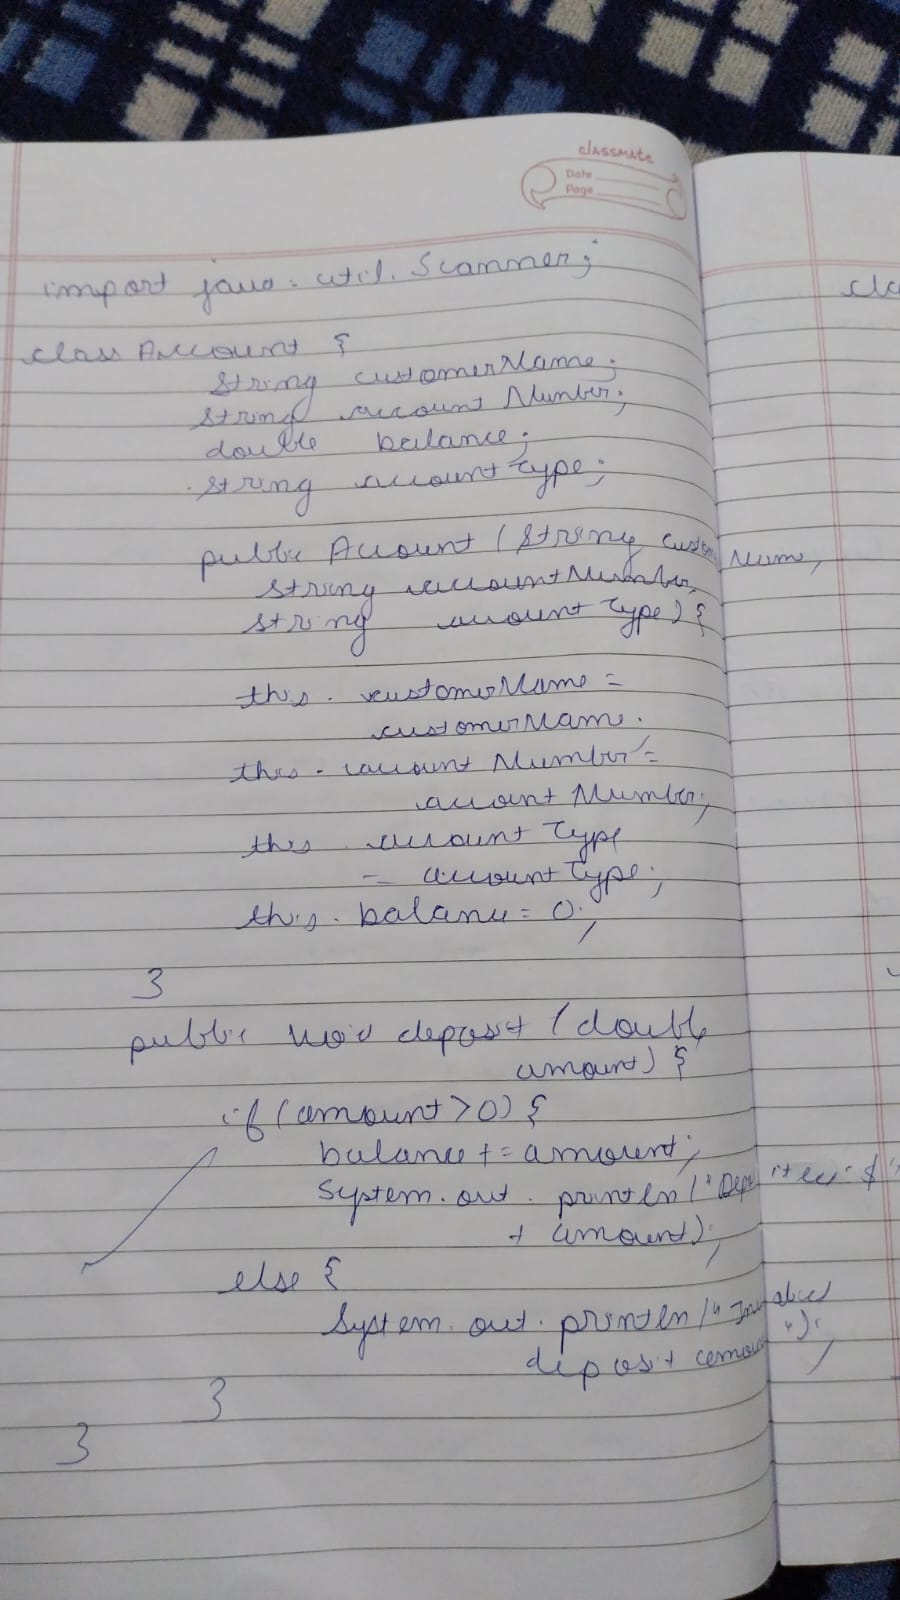 classmate
Date
Page
import java.util.Scanner;
class Account {
String customerName;
String account Number;
double balance;
String accountType;
public Account (String customerName,
String accountNumber,
String accountType) {
this. customerName =
customerName.
this. account Number =
account Number;
this. account Type
= account Type;
this. balance = 0;
}
public void deposit (double
amount) {
if (amount > 0) {
balance += amount;
System.out. println ("Deposited: $"
+ amount);
else {
System.out.println ("Invalid
deposit amount ");
}
}
cla